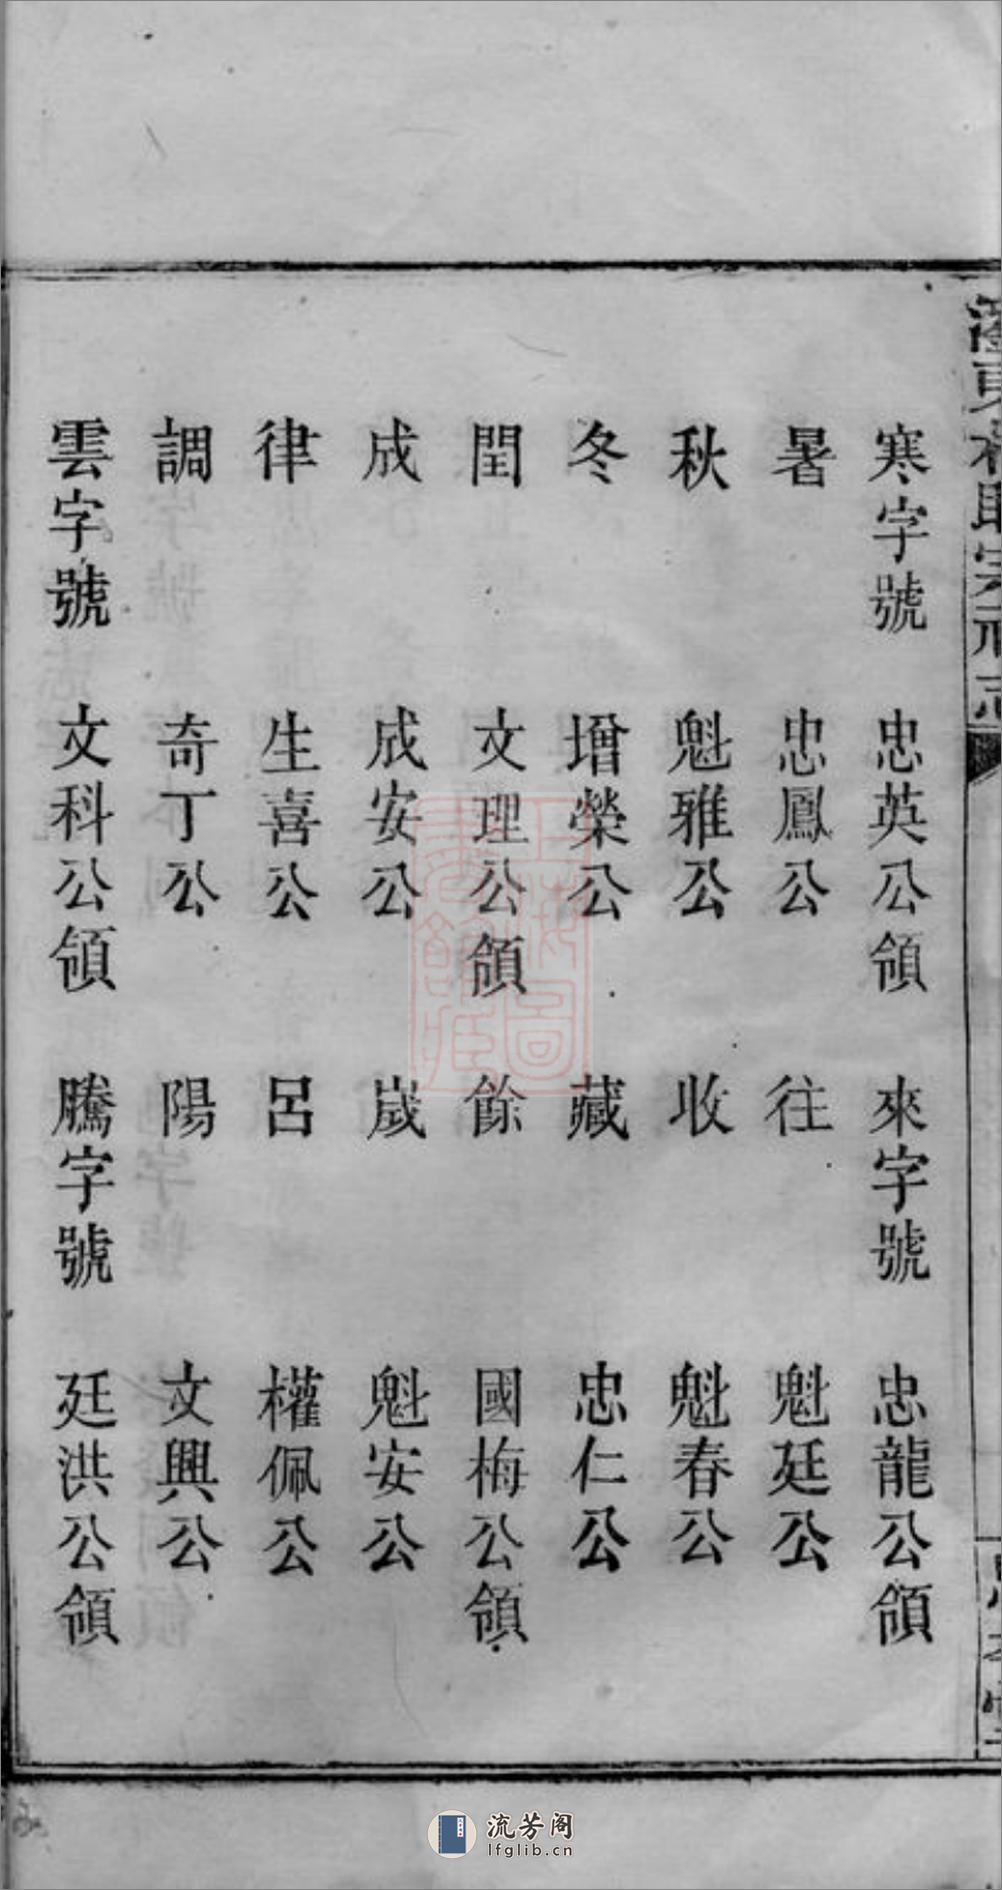 寒字號 忠英公領 來字號 忠龍公領
暑 忠鳳公 往 魁廷公
秋 魁雅公 收 魁春公
冬 增榮公 藏 忠仁公
閏 文理公領 餘 國梅公領
成 成安公 歲 魁安公
律 生喜公 呂 權佩公
調 奇丁公 陽 文興公
雲字號 文科公領 騰字號 廷洪公領
流芳阁
lfglib.cn